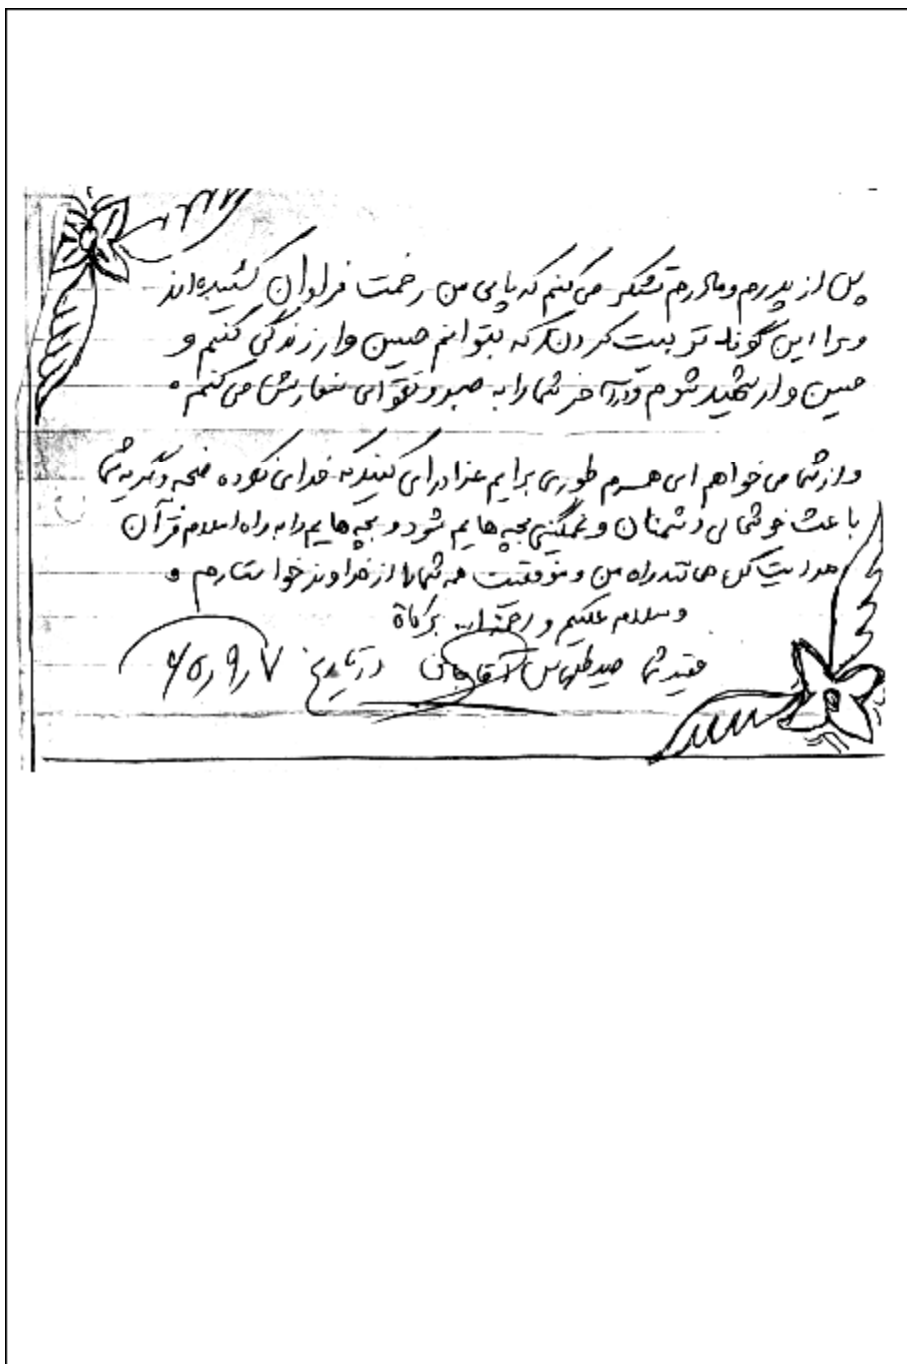 پس از پدرم و مادرم تشکر می‌کنم که پایی من زخمت فراوان کشیده‌اند
و مرا این گونه تربیت کردند که بتوانم حسین وار زندگی کنم و
حسین وار شهید شوم و در آخر شما را به صبر و تقوای سفارش می‌کنم ۰
و از شما می‌خواهم ای همسرم طوری برایم عزاداری کنید که خدای نکرده ضجه و گریه شما
باعث خوشحالی دشمنان و غمگینی بچه‌هایم شود و بچه‌هایم را به راه اسلام قرآن
هدایت کن مانند راه من و موفقیت همه شما را از خداوند خواستارم و
وسلام علیکم و رحمة ا... برکاة
شما صید طهماس آقاجانی در تاریخ ۶۵٫۹٫۷